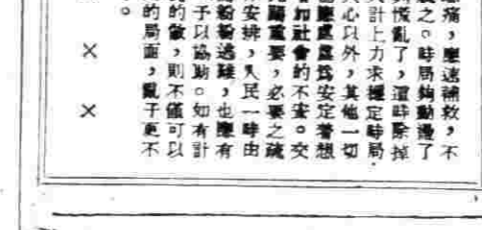 痛,應速補救,不
之。時局夠動盪了
慌亂了,這時除掉
計上力求穩定時局
心以外,其他一切
應處處爲安定着想
加社會的不安。交
重要,必要之疏
安排,人民一時由
紛紛逃難,也應有
予以協助。如有計
的做,則不僅可以
的局面,亂子更不
。
× ×